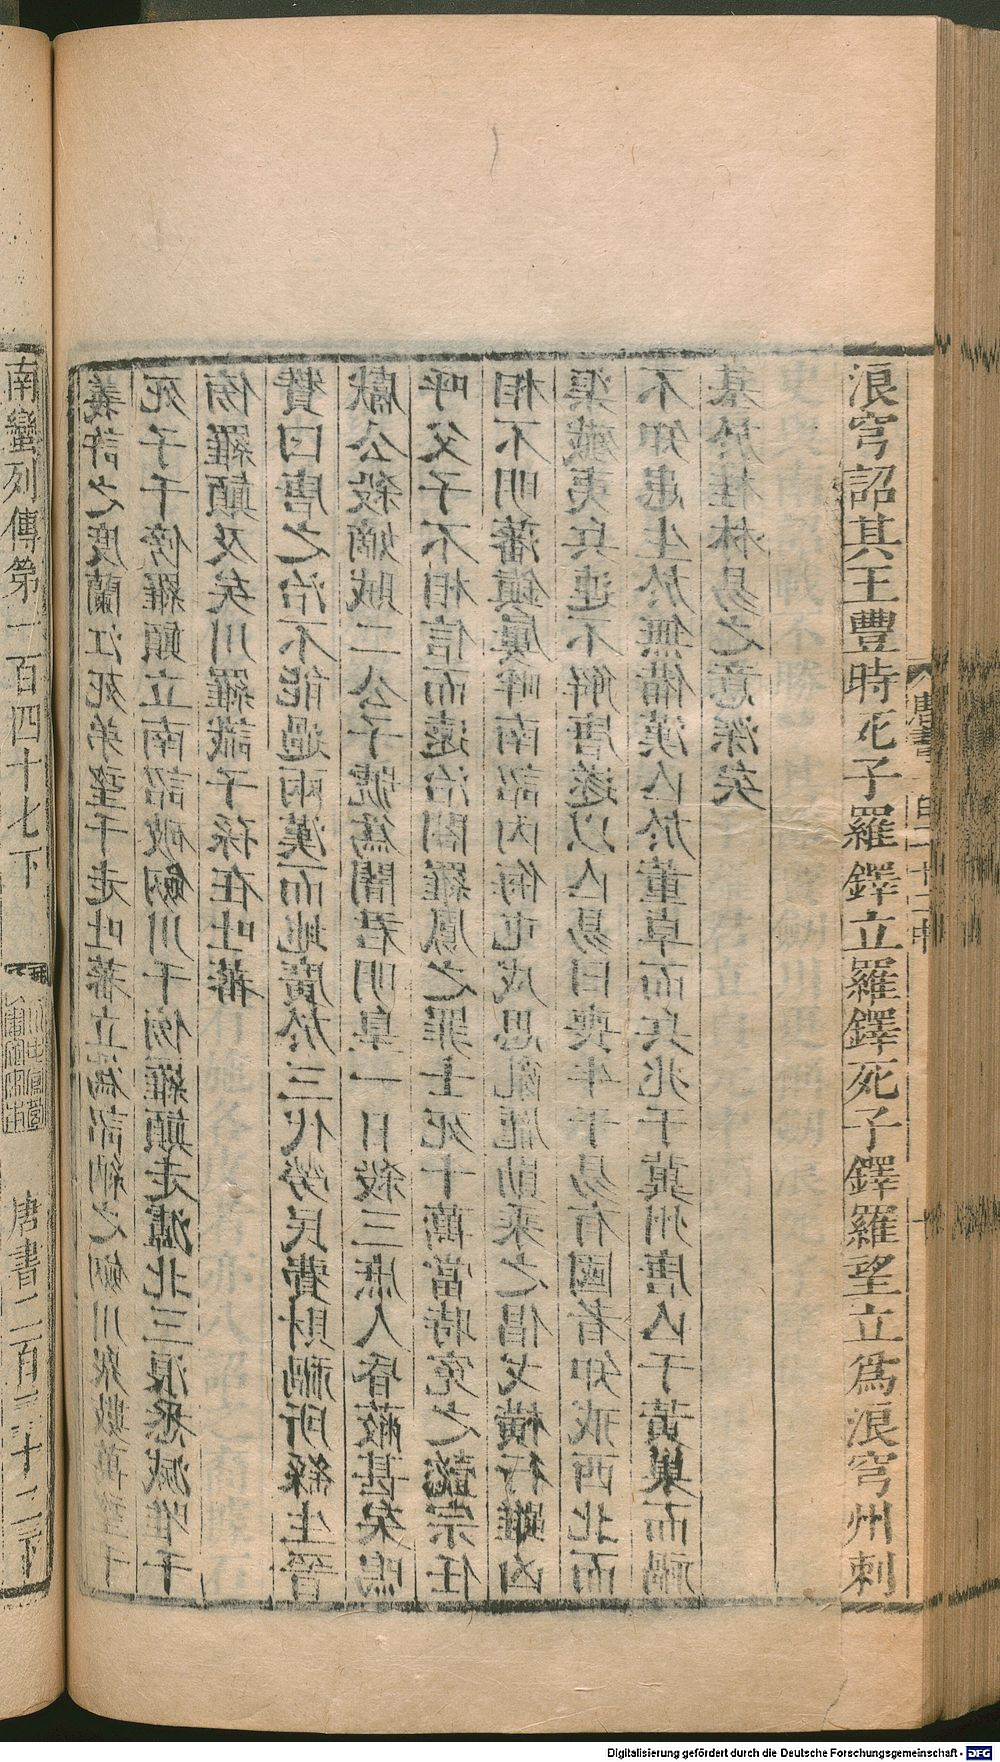 浪穹詔其王豐時死子羅鐸立羅鐸死子鐸羅望立為浪穹州刺
義許之度蘭江死弟望千走吐蕃立為詔納之劍川眾數萬望千
死子千傍羅顛立南詔破劍川千傍羅顛走瀘北三浪悉滅唯千
傍羅顛及矣川羅識子孫在吐蕃
贊曰唐之治不能過兩漢而地廣於三代勞民費財禍所繇生晉
獻公殺嫡賊二公子號為闇君明皇一日殺三庶人昏蔽甚矣嗚
呼父子不相信而遠治閤羅鳳之罪士死十萬當時冤之懿宗任
相不明藩鎮屢畔南詔內侮屯戍思亂龐勛乘之倡戈橫行雖凶
渠殲夷兵連不解唐遂以亾易曰喪牛于易有國者知戒西北而
不知患生於無備漢亾於董卓而兵兆于冀州唐亾于黃巢而禍
基於桂林易之意深矣
南蠻列傳第一百四十七下 唐書二百二十二下
Digitalisierung gefördert durch die Deutsche Forschungsgemeinschaft - DFG